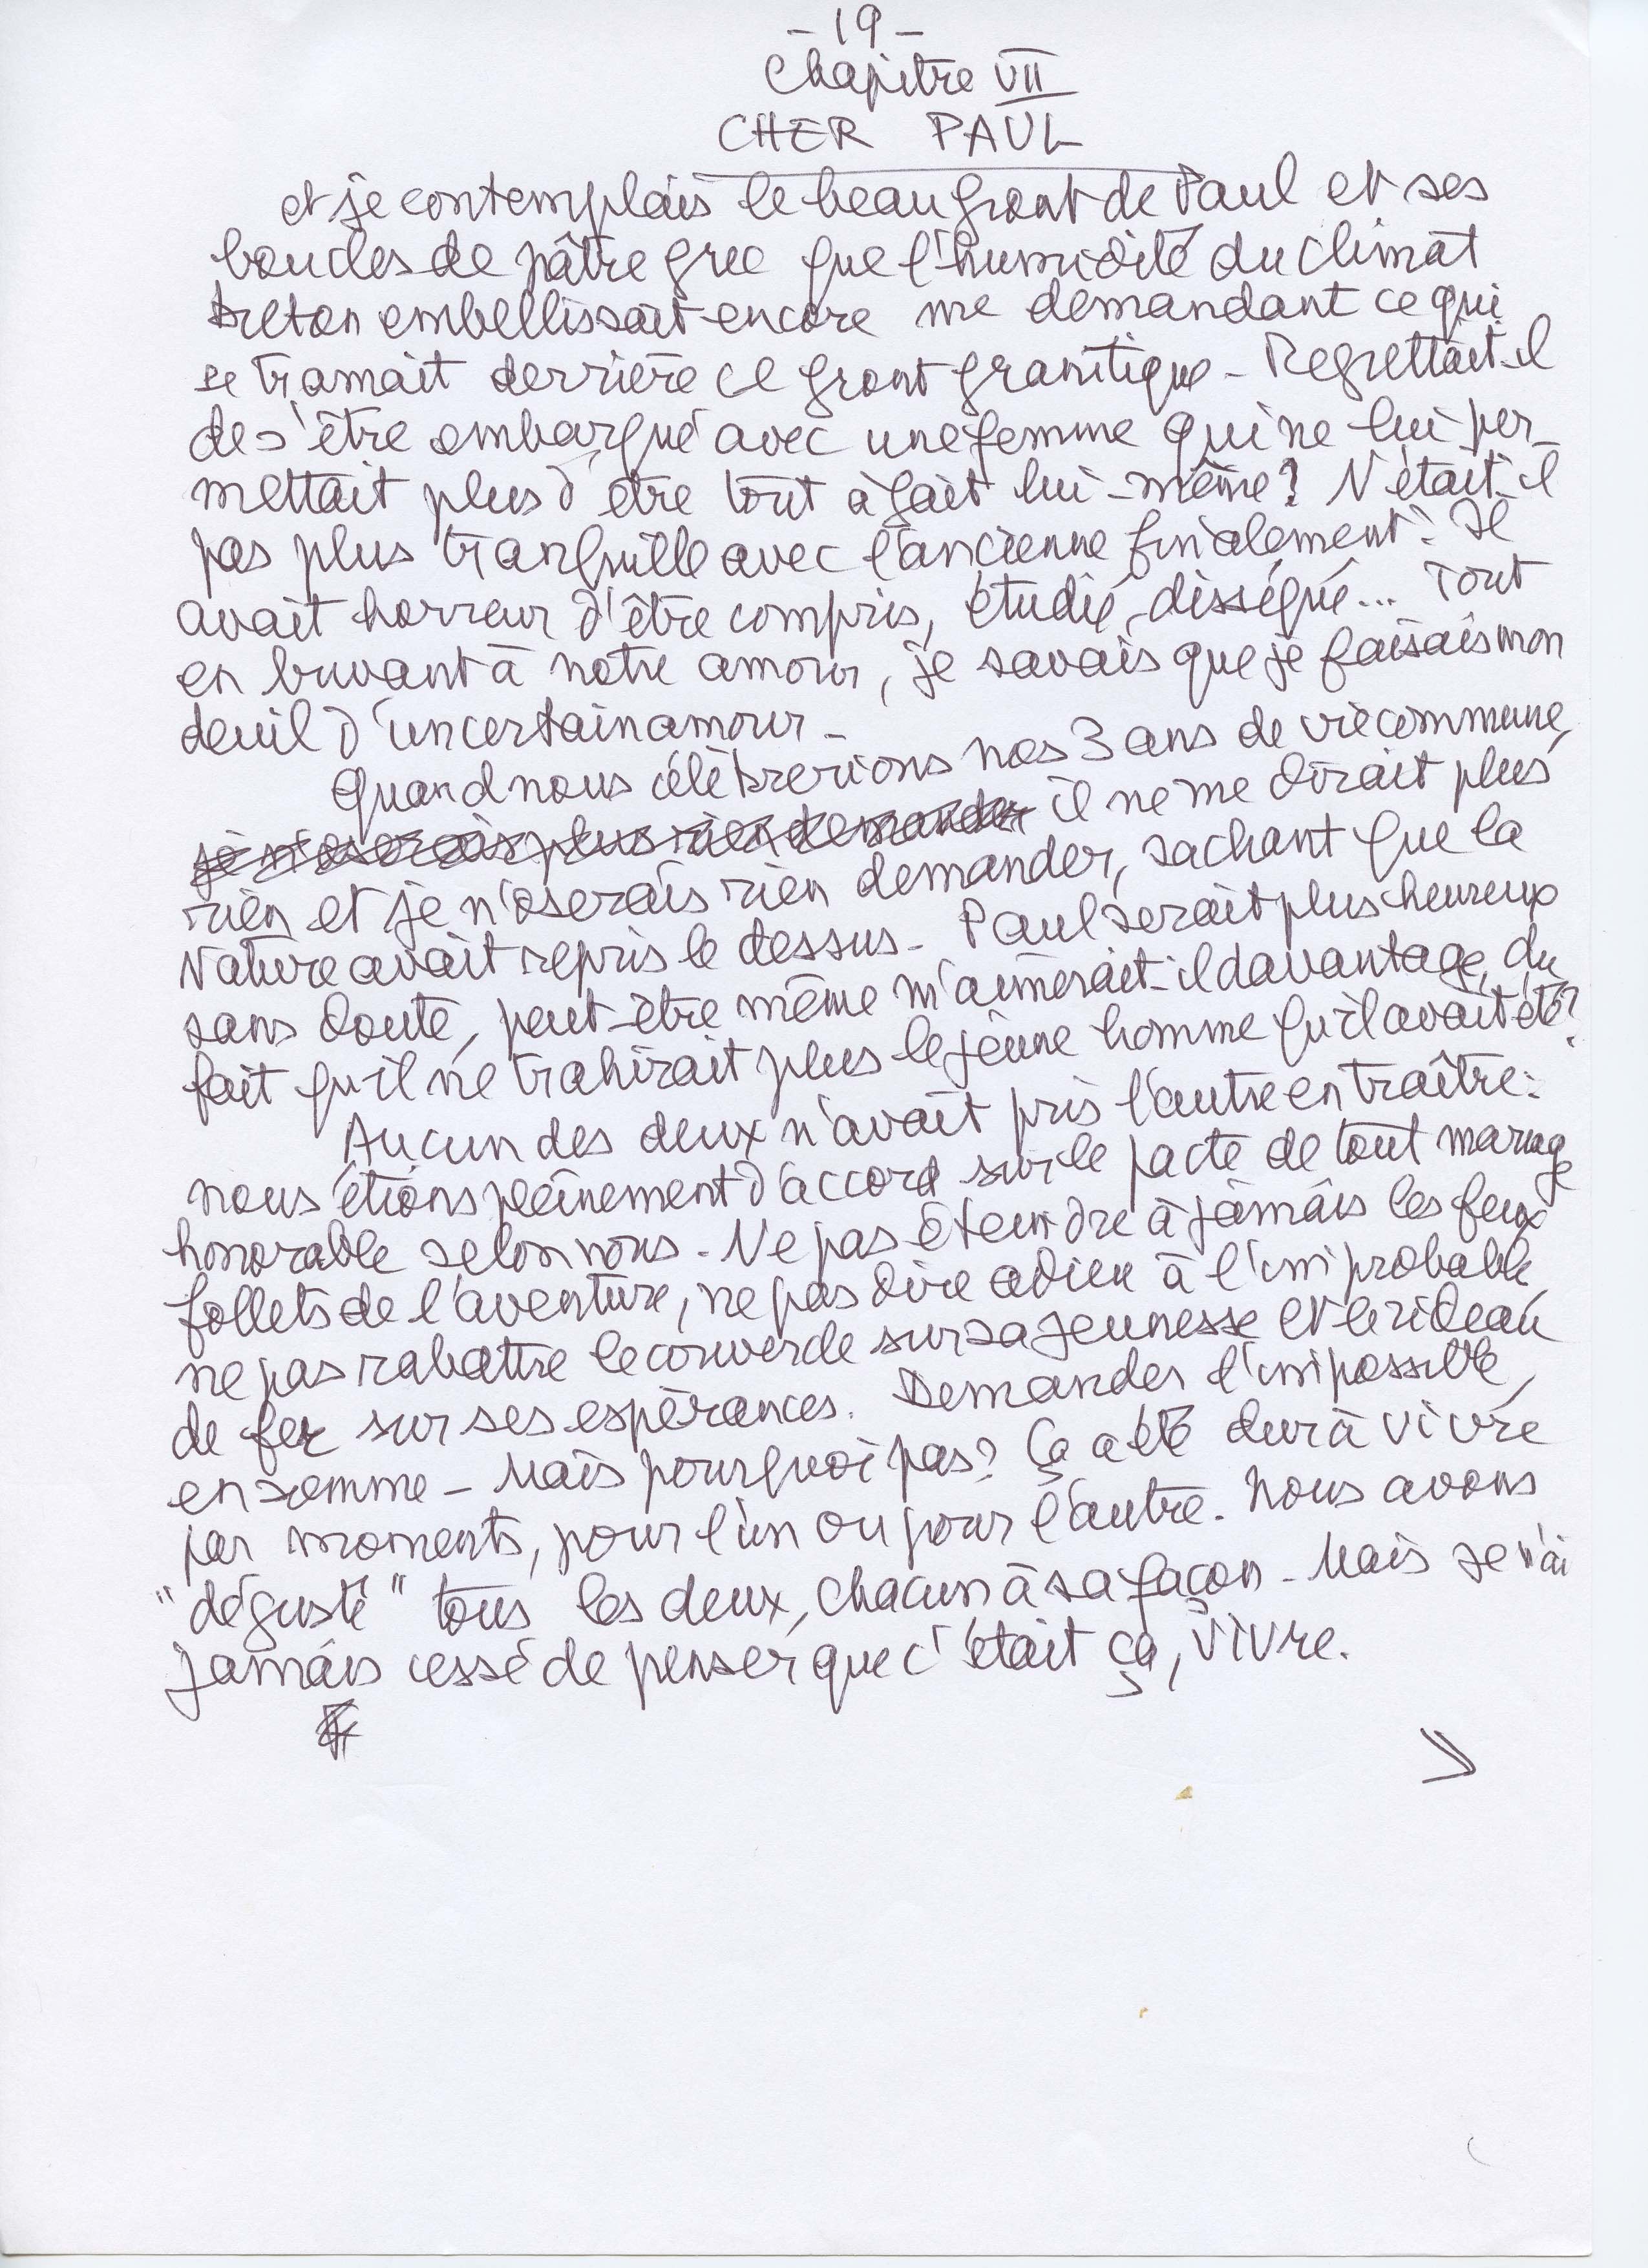 - 19 -
Chapitre VII
CHER PAUL
et je contemplais le beau front de Paul et ses
boucles de pâtre grec que l'humidité du climat
breton embellissait encore me demandant ce qui
se tramait derrière ce front granitique - Regrettait-il
de s'être embarqué avec une femme qui ne lui per-
mettait plus d'être tout à fait lui-même? N'était-il
pas plus tranquille avec l'ancienne finalement? Il
avait horreur d'être compris, étudié, disséqué... Tout
en buvant à notre amour, je savais que je faisais mon
deuil d'un certain amour -
Quand nous célébrerions nos 3 ans de vie commune,
je n'oserais plus rien demander il ne me dirait plus
rien et je n'oserais rien demander, sachant que la
Nature avait repris le dessus - Paul serait plus heureux
sans doute, peut-être même m'aimerait-il davantage, du
fait qu'il ne trahirait plus le jeune homme qu'il avait été?
Aucun des deux n'avait pris l'autre en traître:
nous étions pleinement d'accord sur le pacte de tout mariage
honorable selon nous - Ne pas éteindre à jamais les feux
follets de l'aventure, ne pas dire adieu à l'improbable,
ne pas rabattre le couvercle sur sa jeunesse et le rideau
de fer sur ses espérances. Demander l'impossible,
en somme - Mais pourquoi pas? Ça a été dur à vivre
par moments, pour l'un ou pour l'autre. Nous avons
"dégusté" tous les deux, chacun à sa façon - Mais je n'ai
jamais cessé de penser que c'était ça, vivre.